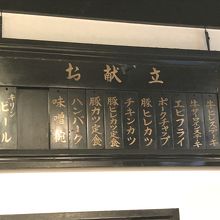 お献立
牛ヒレステーキ
牛サーロインステーキ
エビフライ
ポークチャップ
豚ヒレカツ
チキンカツ
豚ヒレカツ定食
豚カツ定食
ハンバーグ
味噌椀
キリン
ビール